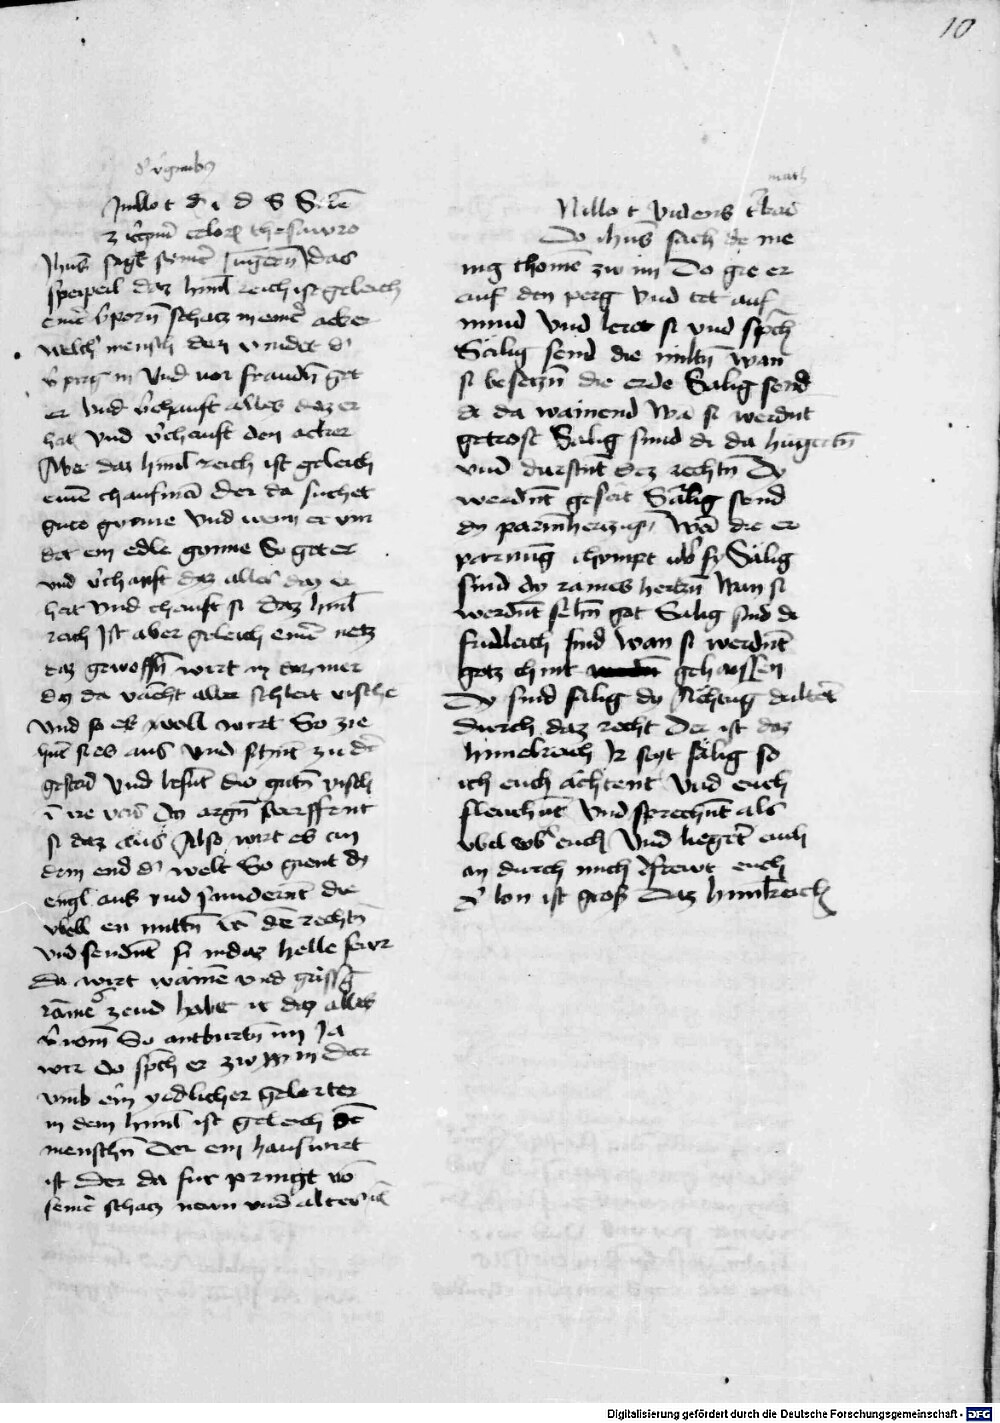 10
In illo t d i d s S. Simile
est regnum celorum thesauro
Jhus sagt seinē iungern Das
speipeil daz himl reich ist geleich
einē v̄porn schacz in einē acker
welch mensch den vindet d'
v̄pirg in Vnd vor frauden get
er vnd v̄chauft alles daz er
hat Vnd v̄chauft den acker
Aber daz himl reich ist geleich
einē chaufmā Der da suchet
gute gymme Vnd wenn er vin
det ein edle gymme So get er
vnd v̄chauft daz alles daz er
hat Vnd chauft si Daz himl
reich Ist aber geleich einē netz
daz geworffn̄ wirt in daz mer
daz da vācht aller schlecht vische
Vnd so es woll wirt So zie
hnt si es aus Vnd sitznt zu dē
gestad Vnd lesnt die gutn̄ visch
ī ire vas Dy argn̄ werffent
si daz aus Also wirt es an
dem end d' welt So gient dy
engl aus vnd sundernt die
vbeln en mittn̄ vō dē rechtn̄
Vnd sendnt si in daz helle fewr
da wirt wainē vnd grißg
rāme zend habt ir daz alles
v̄nom̄ So antburtn̄ im Ja
wir do sp̄ch er zw in Dar
vmb ein yedlicher gelerter
in dem himl ist geleich dē
menschn̄ Der ein hauswirt
ist Der da fur pringt vō
seinē schacz newn vnd altew
math
In illo t Videns turbas
Do ihus sach die me
nig chomē zw im Do gie er
auf den perg Vnd tet auf
mund Vnd leret si vnd sp̄ch
Sälig send die miltn̄ wan
si besetzn̄ die erde Salig send
di da wainend Wā si werdnt
getrost Salig sind di da hūgertn̄
vnd durstnt dez rechtn̄ Dy
werdnt gesatt Sälig send
dy parmherczign̄ Wā die er
parmūg chympt vb' sy Sälig
sind dy raines hertzn̄ Wan si
werdnt sehn̄ got Salig sind di
fridleich sind wan si werdnt
gotz chint gehaissen
Dy sind sälig dy Achtūg dultēt
durch daz recht Der ist daz
himelreich Ir seyt sälig so
ich euch Achtent Vnd euch
fleuchnt Vnd sprechnt als
vbel vb' euch Vnd liegnt euch
an durch mich Frewt euch
Ewr lon ist groß Daz himlreich
Digitalisierung gefördert durch die Deutsche Forschungsgemeinschaft - DFG